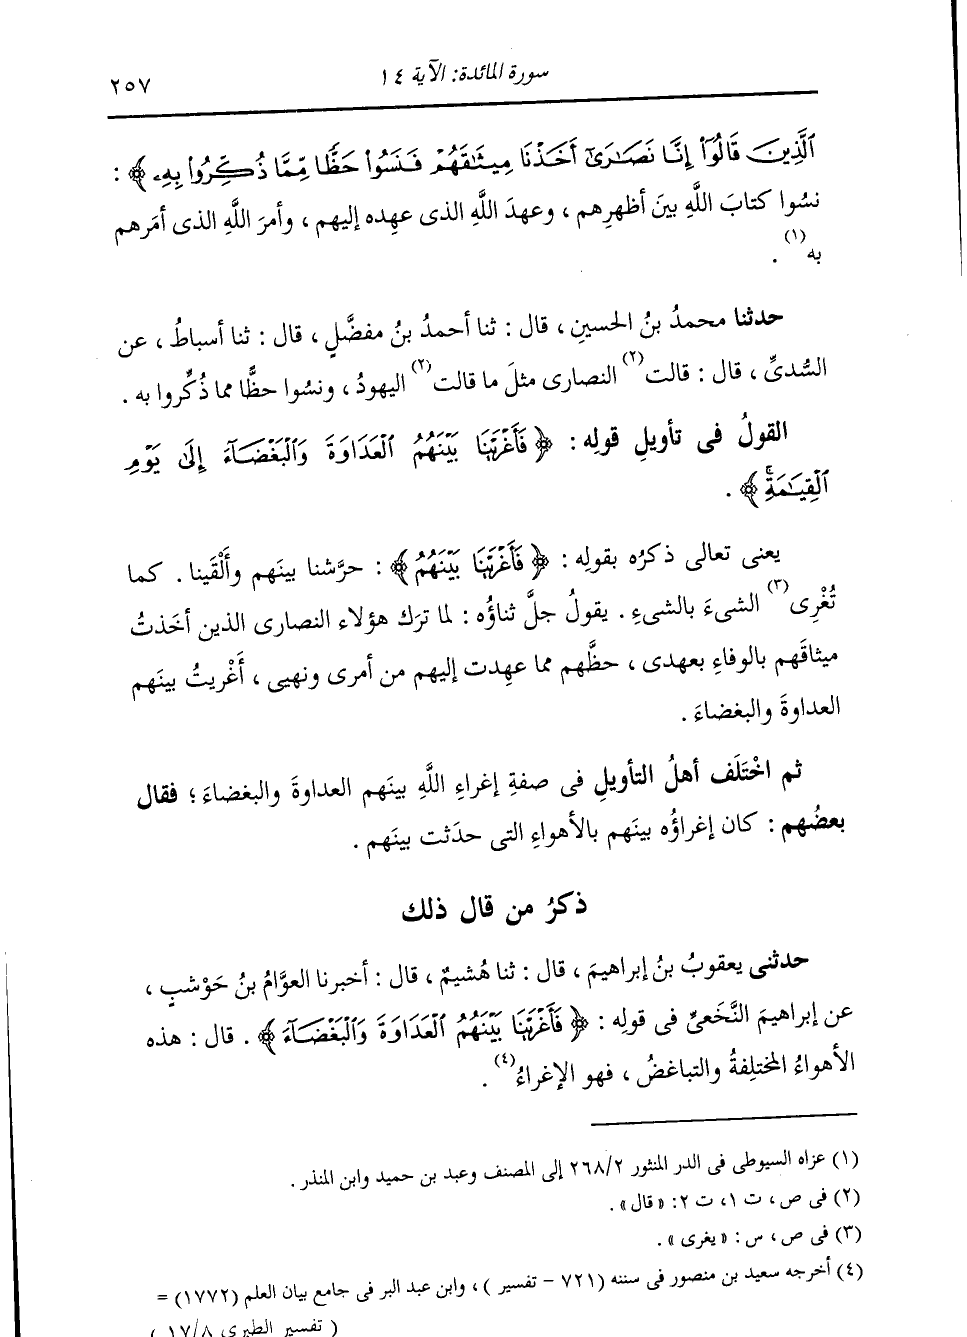 سورة المائدة: الآية ١٤
٢٥٧
ٱلَّذِينَ قَالُوٓا۟ إِنَّا نَصَـٰرَىٰٓ أَخَذْنَا مِيثَـٰقَهُمْ فَنَسُوا۟ حَظًّا مِّمَّا ذُكِّرُوا۟ بِهِۦ ﴾ :
نسُوا كتابَ اللَّهِ بينَ أظهرِهم ، وعهدَ اللَّهِ الذى عهِده إليهم ، وأمرَ اللَّهِ الذى أمَرهم
به(١) .
حدثنا محمدُ بنُ الحسينِ ، قال : ثنا أحمدُ بنُ مفضَّلٍ ، قال : ثنا أسباطُ ، عن
السُّدىِّ ، قال : قالت(٢) النصارى مثلَ ما قالت(٢) اليهودُ ، ونسُوا حظًّا مما ذُكِّروا به .
القولُ فى تأويلِ قولِه : ﴿ فَأَغْرَيْنَا بَيْنَهُمُ ٱلْعَدَاوَةَ وَٱلْبَغْضَآءَ إِلَىٰ يَوْمِ
ٱلْقِيَـٰمَةِۚ ﴾ .
يعنى تعالى ذكرُه بقولِه : ﴿ فَأَغْرَيْنَا بَيْنَهُمُ ﴾ : حرَّشنا بينَهم وأَلْقَينا . كما
تُغْرِى(٣) الشىءَ بالشىءِ . يقولُ جلَّ ثناؤُه : لما ترَك هؤلاء النصارى الذين أخَذتُ
ميثاقَهم بالوفاءِ بعهدى ، حظَّهم مما عهِدت إليهم من أمرى ونهيى ، أَغْريتُ بينَهم
العداوةَ والبغضاءَ .
ثم اخْتَلَف أهلُ التأويلِ فى صفةِ إغراءِ اللَّهِ بينَهم العداوةَ والبغضاءَ ؛ فقال
بعضُهم : كان إغراؤُه بينَهم بالأهواءِ التى حدَثت بينَهم .
ذكرُ من قال ذلك
حدثنى يعقوبُ بنُ إبراهيمَ ، قال : ثنا هُشيمٌ ، قال : أخبرنا العوَّامُ بنُ حَوْشبٍ ،
عن إبراهيمَ النَّخَعىِّ فى قولِه : ﴿ فَأَغْرَيْنَا بَيْنَهُمُ ٱلْعَدَاوَةَ وَٱلْبَغْضَآءَ ﴾ . قال : هذه
الأهواءُ المختلِفةُ والتباغضُ ، فهو الإغراءُ(٤) .
(١) عزاه السيوطى فى الدر المنثور ٢٦٨/٢ إلى المصنف وعبد بن حميد وابن المنذر .
(٢) فى ص ، ت ١، ت ٢: « قال » .
(٣) فى ص ، س : « يغرى » .
(٤) أخرجه سعيد بن منصور فى سننه (٧٢١ - تفسير ) ، وابن عبد البر فى جامع بيان العلم (١٧٧٢) =
( تفسير الطبرى ١٧/٨ )